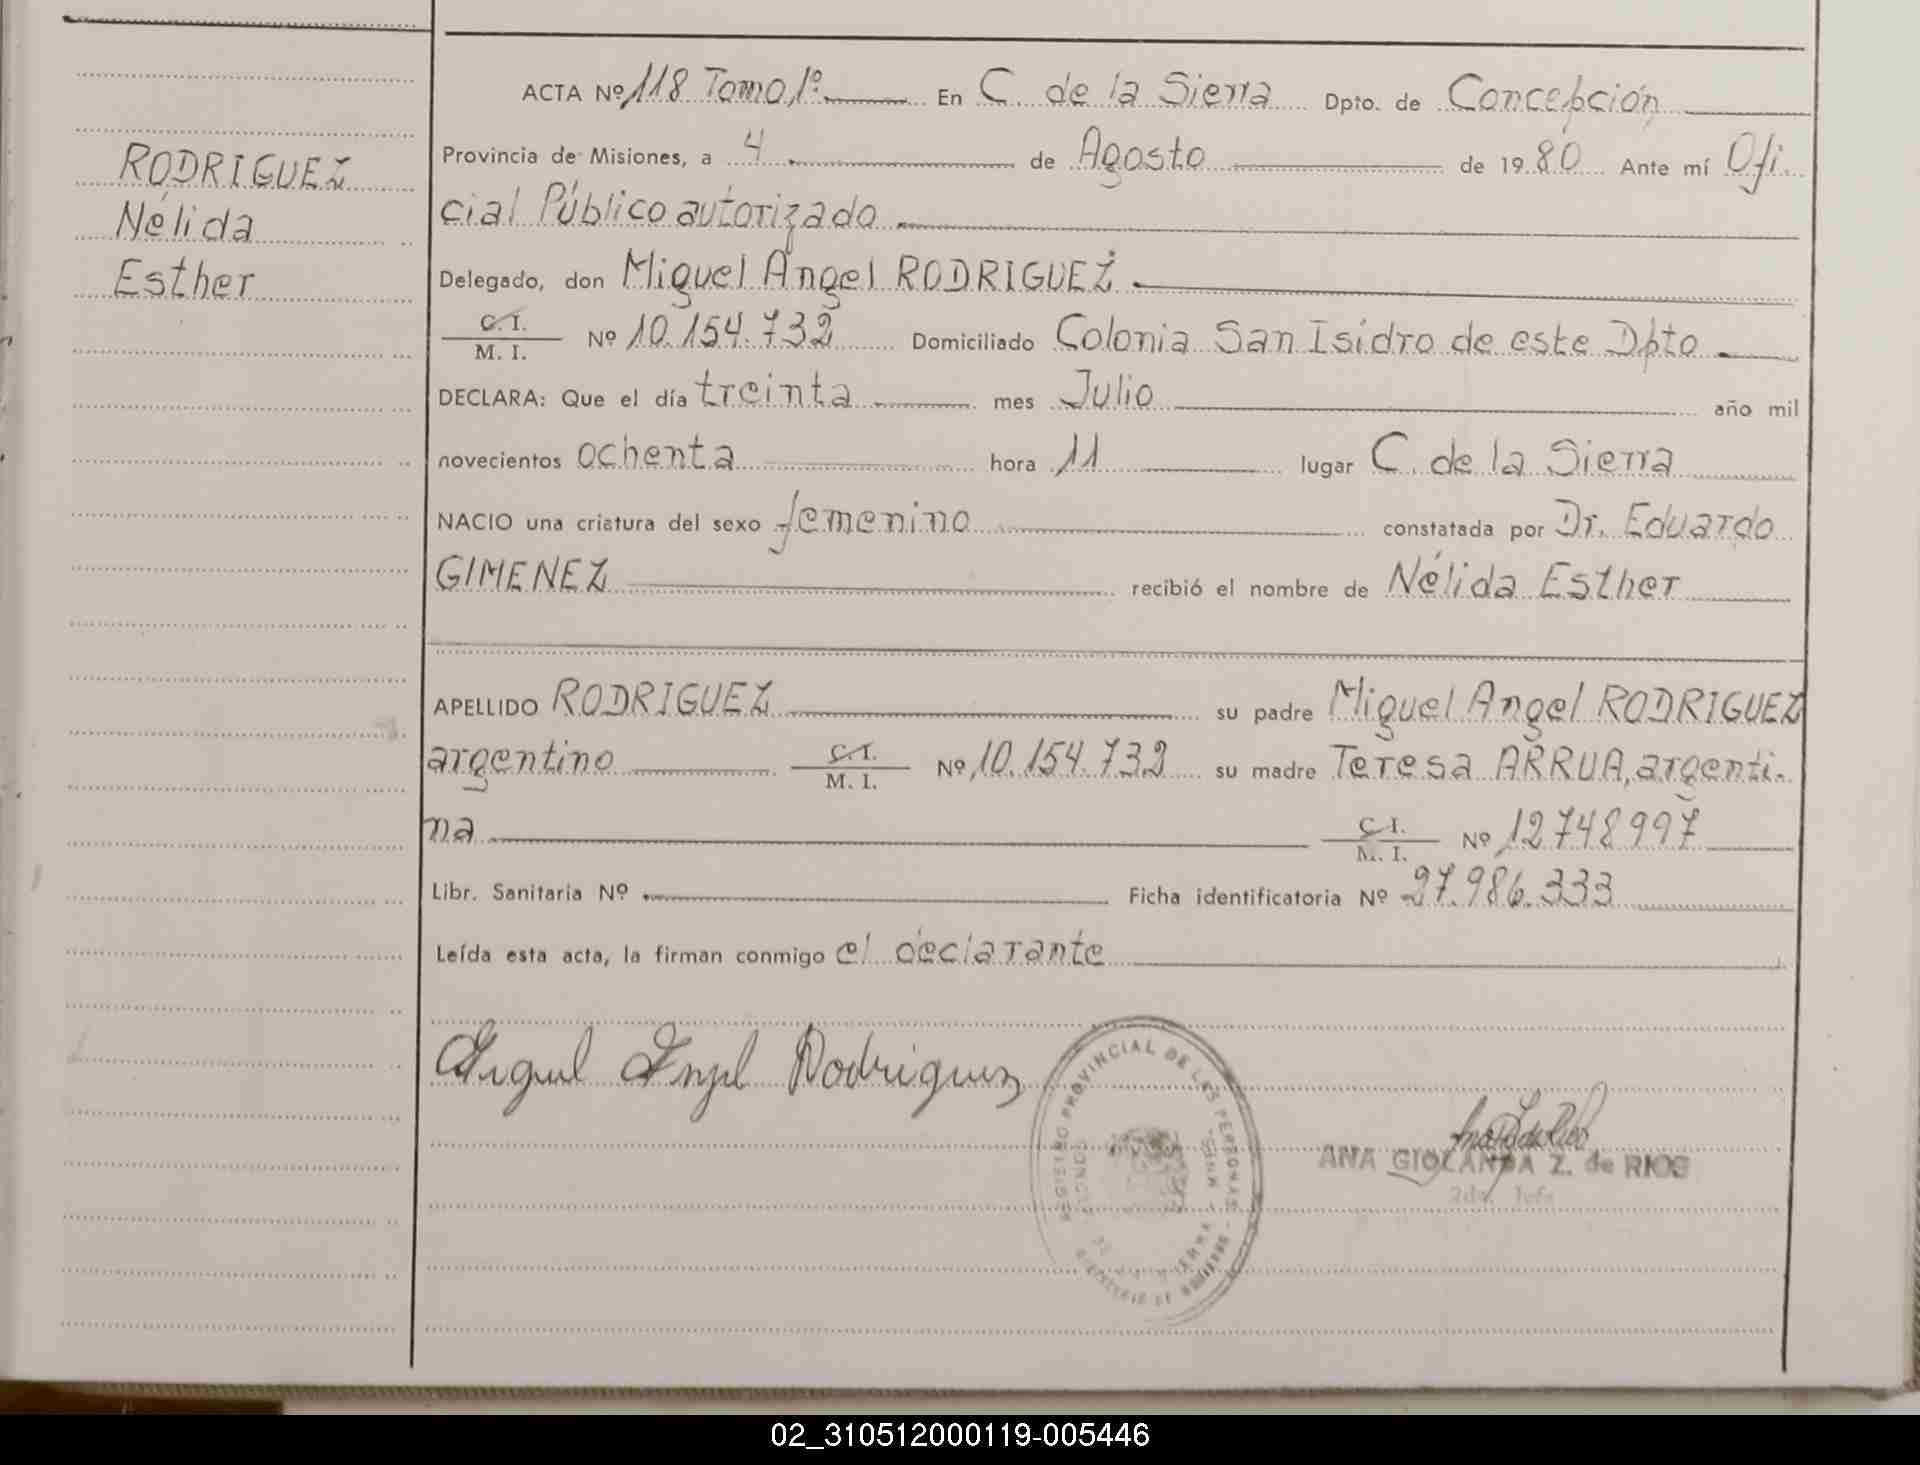 RODRIGUEZ
Nélida
Esther
ACTA Nº 118 Tomo 1º. En C. de la Sierra Dpto. de Concepción
Provincia de Misiones, a 4 de Agosto de 1980 Ante mí Ofi.
cial Público autorizado
Delegado, don Miguel Angel RODRIGUEZ
C. I.
M. I. Nº 10.154.732 Domiciliado Colonia San Isidro de este Dpto
DECLARA: Que el día treinta mes Julio año mil
novecientos ochenta hora 11 lugar C. de la Sierra
NACIO una criatura del sexo femenino constatada por Dr. Eduardo
GIMENEZ recibió el nombre de Nélida Esther
APELLIDO RODRIGUEZ su padre Miguel Angel RODRIGUEZ
argentino C. I.
M. I. Nº 10.154.732 su madre Teresa ARRUA, argenti-
na C. I.
M. I. Nº 12748997
Libr. Sanitaria Nº Ficha identificatoria Nº 27.986.333
Leída esta acta, la firman conmigo el declarante
Miguel Angel Rodriguez
REGISTRO PROVINCIAL DE LAS PERSONAS
ANA GIOLANDA Z. de RIOS
02_310512000119-005446